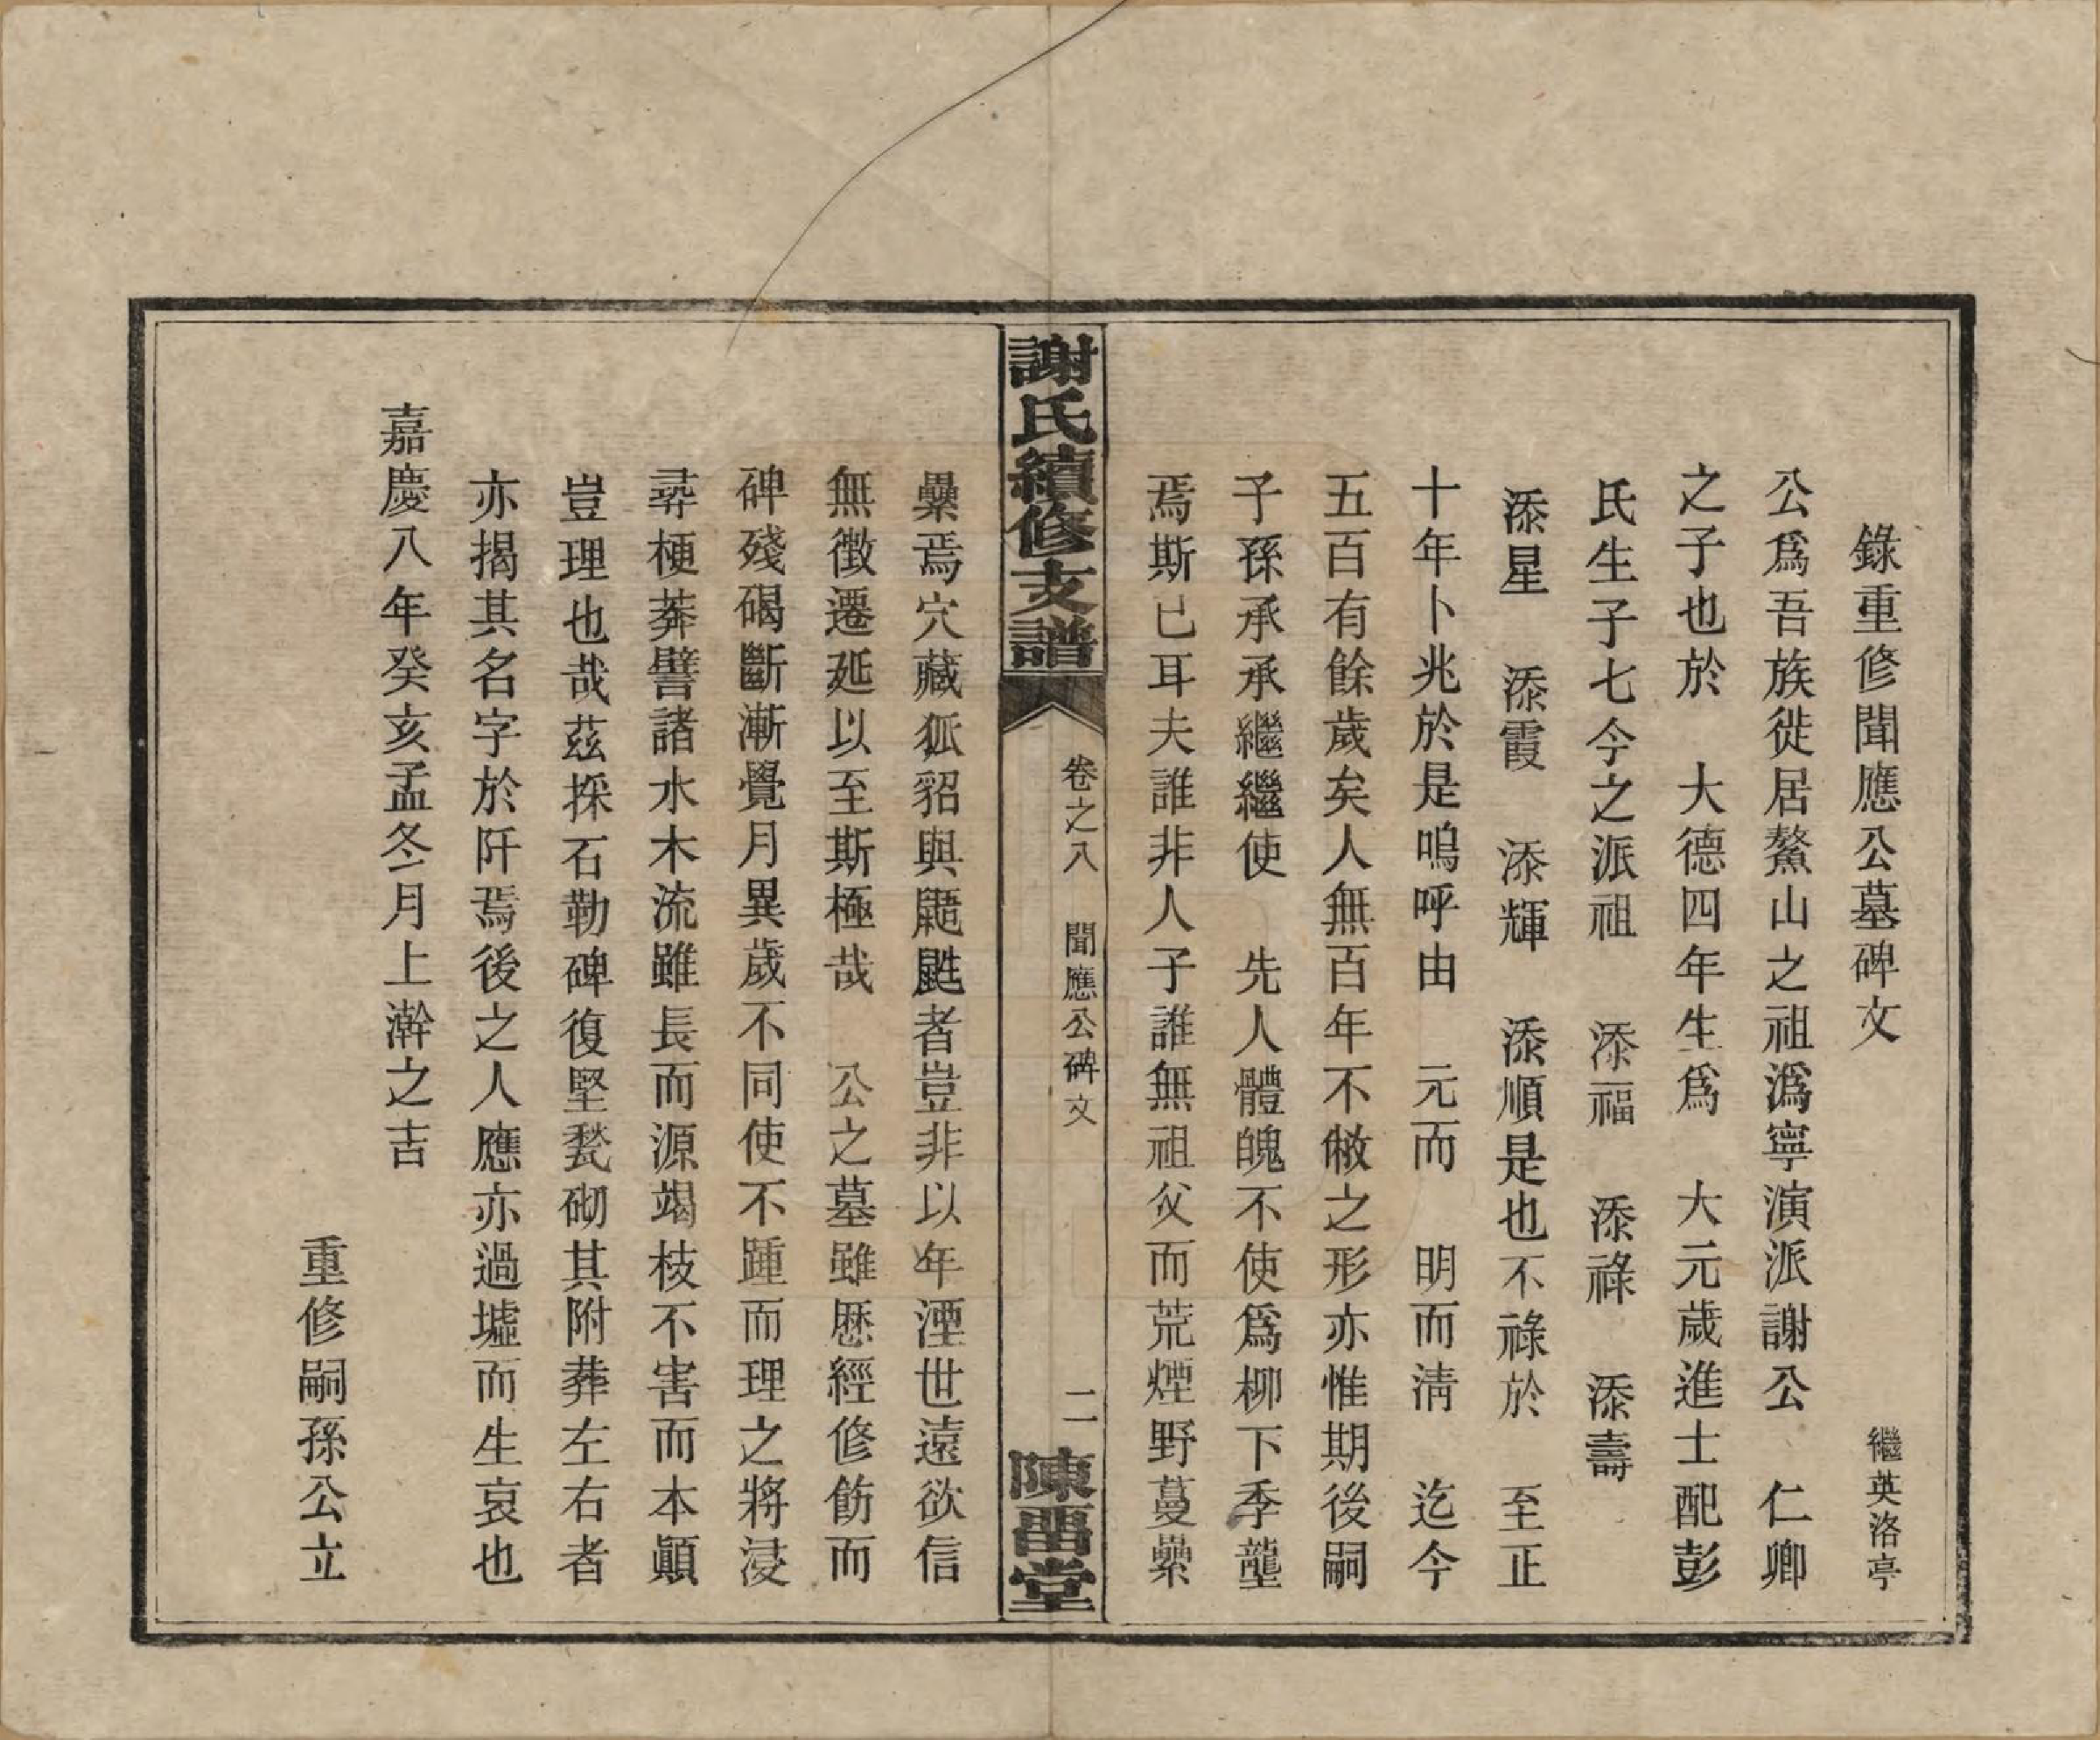 錄重修聞應公墓碑文 繼英洛亭
公爲吾族徙居鰲山之祖潙寧演派謝公 仁卿
之子也於 大德四年生爲 大元歲進士配彭
氏生子七今之派祖 添福 添祿 添壽
添星 添霞 添輝 添順是也不祿於 至正
十年卜兆於是嗚呼由 元而 明而淸 迄今
五百有餘歲矣人無百年不敝之形亦惟期後嗣
子孫承承繼繼使 先人體魄不使爲柳下季壟
焉斯已耳夫誰非人子誰無祖父而荒煙野蔓纍
謝氏續修支譜
卷之八 聞應公碑文 二
陳畱堂
纍焉穴藏狐貂與鼯鼪者豈非以年湮世遠欲信
無徵遷延以至斯極哉 公之墓雖歷經修飭而
碑殘碣斷漸覺月異歲不同使不踵而理之將浸
尋梗莽譬諸水木流雖長而源竭枝不害而本顚
豈理也哉茲採石勒碑復堅甃砌其附葬左右者
亦揭其名字於阡焉後之人應亦過墟而生哀也
嘉慶八年癸亥孟冬月上澣之吉
重修嗣孫公立